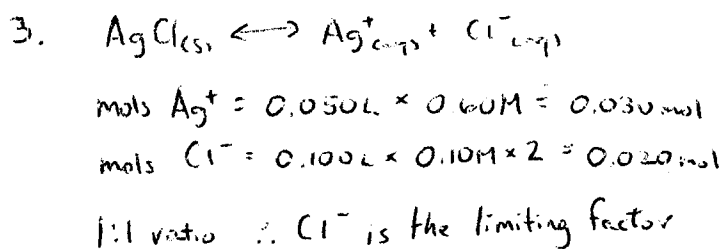 3. AgCl(s) <--> Ag⁺(aq) + Cl⁻(aq)
mols Ag⁺ = 0.050L × 0.60M = 0.030 mol
mols Cl⁻ = 0.100L × 0.10M × 2 = 0.020 mol
1:1 ratio ∴ Cl⁻ is the limiting factor